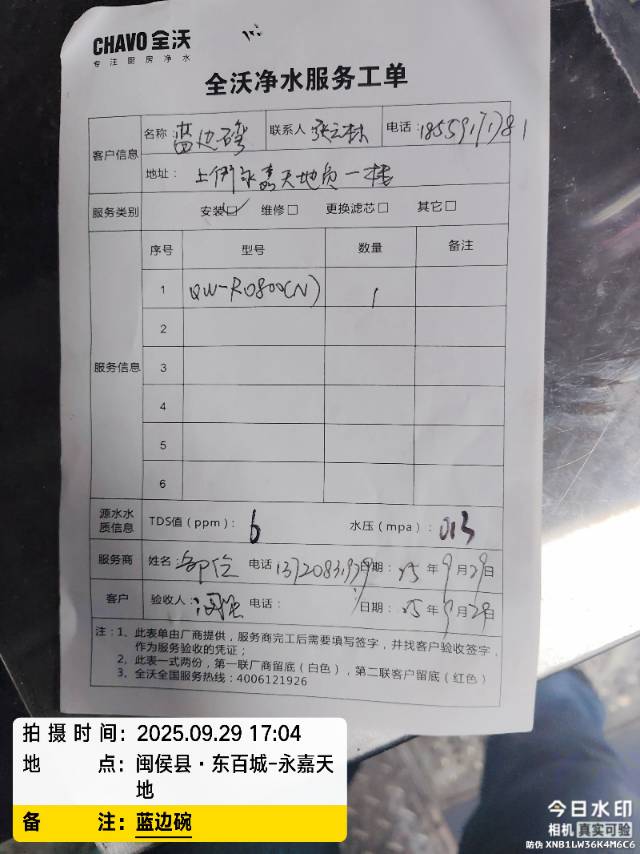 CHAVO 全沃
专注厨房净水
全沃净水服务工单
客户信息
名称: 蓝边碗 联系人 张云林 电话: 18559171781
地址: 上街永嘉天地负一楼
服务类别 安装☑ 维修□ 更换滤芯□ 其它□
服务信息
序号 型号 数量 备注
1 QW-RO800(N) 1
2
3
4
5
6
源水水质信息 TDS值（ppm）: 6 水压（mpa）: 0.3
服务商 姓名: 电话 日期: 25 年 9 月 29 日
客户 验收人: 电话: 日期: 25 年 9 月 29 日
注: 1、此表单由厂商提供，服务商完工后需要填写签字，并找客户验收签字，
作为服务验收的凭证；
2、此表一式两份，第一联厂商留底（白色），第二联客户留底（红色）
3、全沃全国服务热线: 4006121926
拍摄时间: 2025.09.29 17:04
地点: 闽侯县·东百城-永嘉天
地
备注: 蓝边碗
今日水印
相机 真实可验
防伪 XNB1LW36K4M6C6